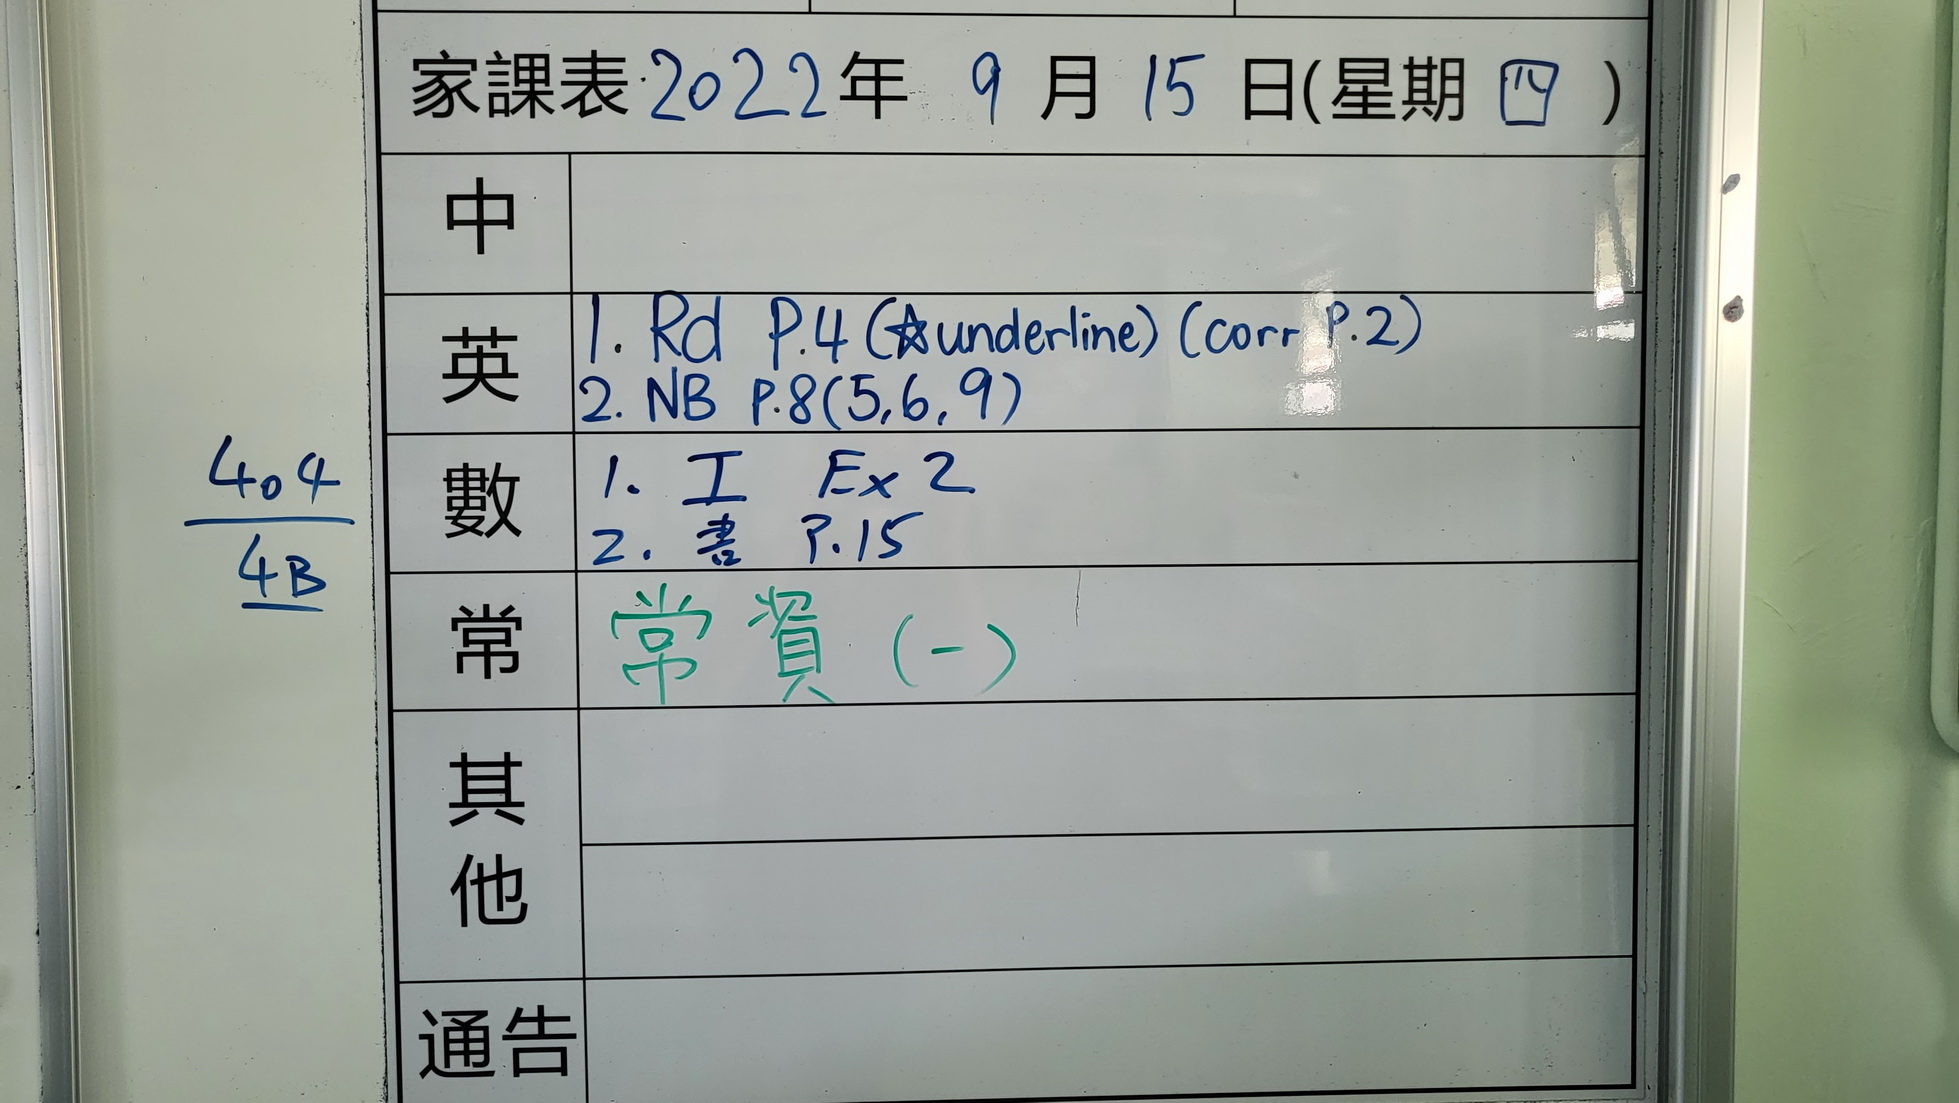 家課表 2022年 9月15日(星期四)
中
英
1. Rd P.4 (☆underline) (corr P.2)
2. NB P.8(5,6,9)
數
1. 工 Ex 2
2. 書 P.15
404
4B
常
常資(一)
其他
通告